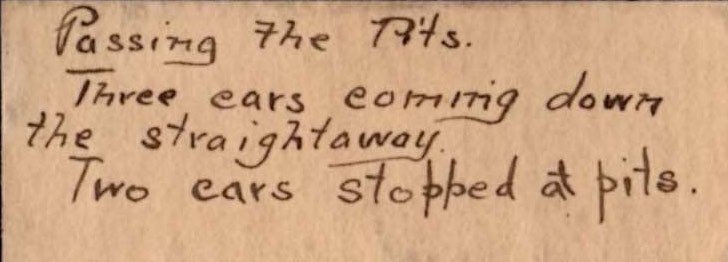 Passing the Pits.
Three cars coming down
the straightaway.
Two cars stopped at pits.